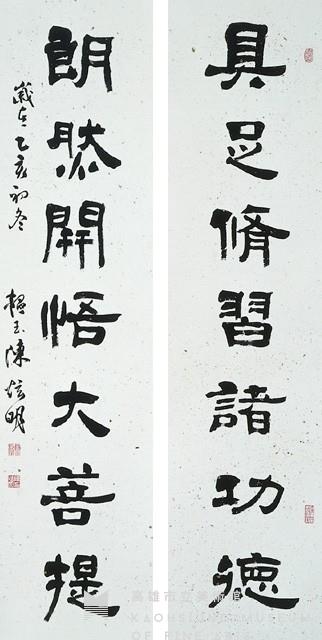 具足脩習諸功德
朗然開悟大菩提
歲在乙亥初冬
韞玉陳炫明
高雄市立美術館
KAOHSIUNG MUSEUM
OF FINE ARTS